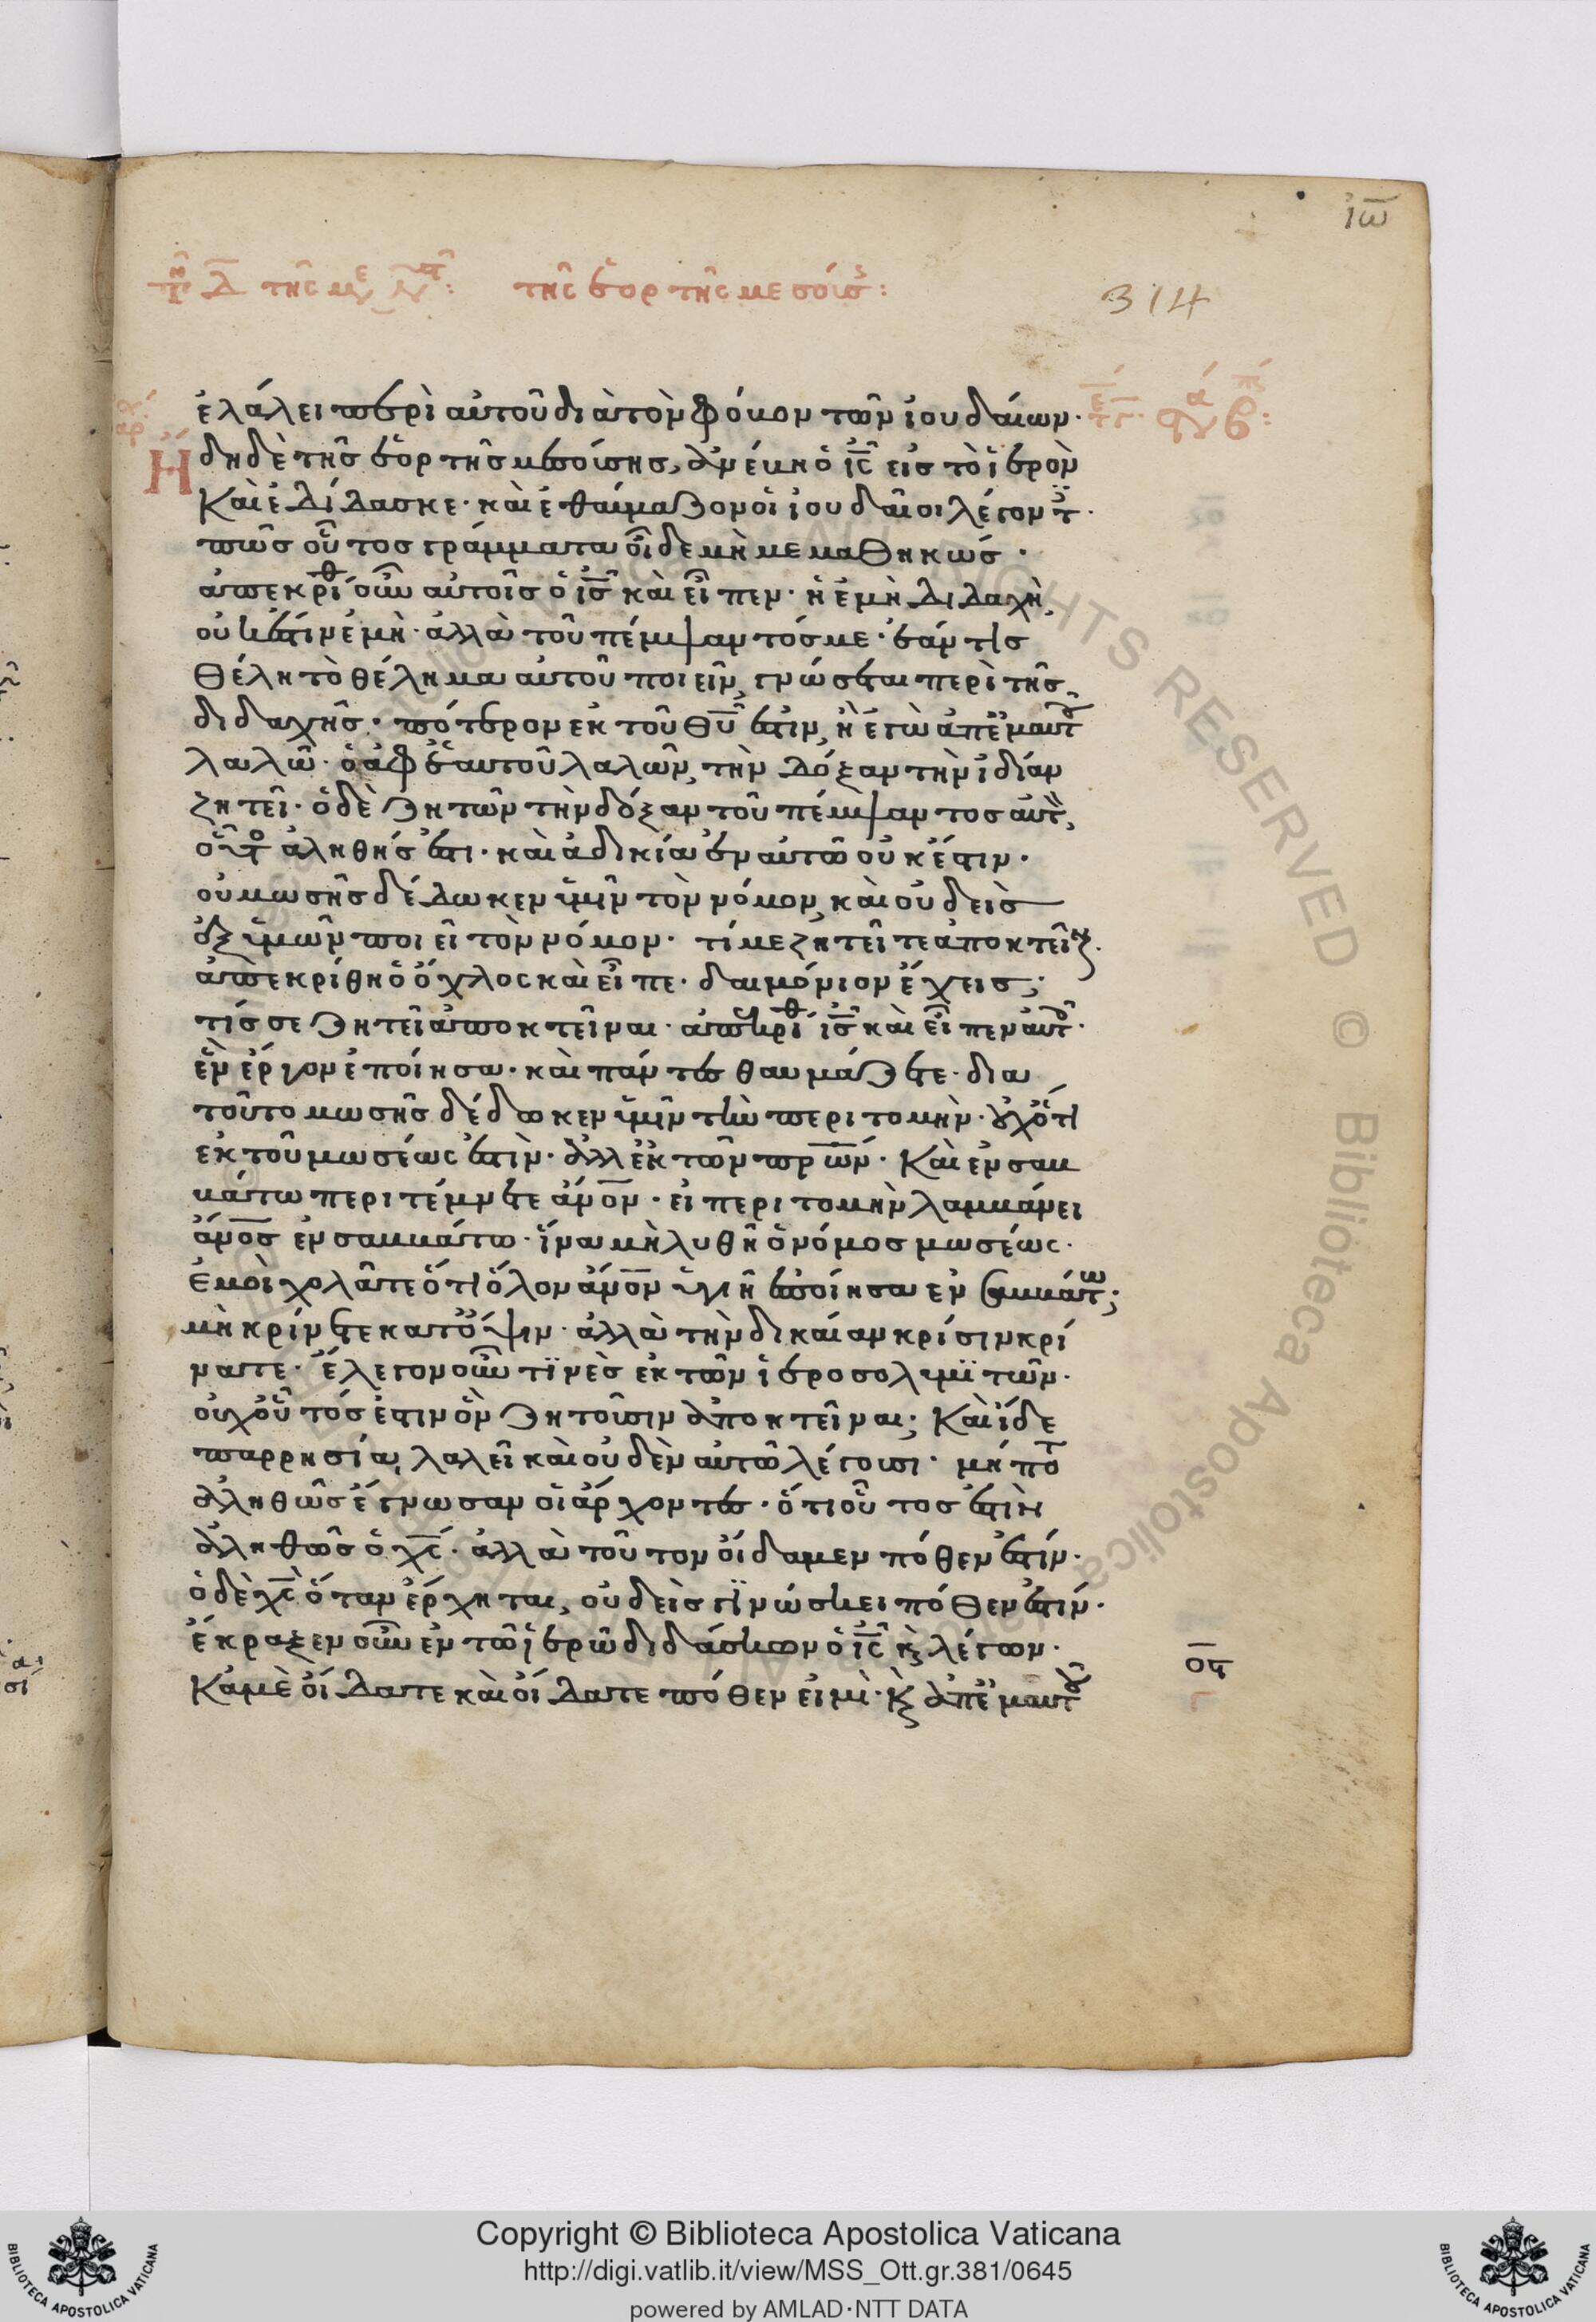 ἰω
τῇ δ τῆς με ν τῆς ἑορτῆς μεσοσ:
314
ἐλάλει περὶ αὐτοῦ διὰ τὸν φόβον τῶν ἰουδαίων·
Ἤδη δὲ τῆς ἑορτῆς μεσούσης, ἀνέβη ὁ ις εἰς τὸ ἱερὸν
καὶ ἐδίδασκε· καὶ ἐθαύμαζον οἱ ἰουδαῖοι λέγοντ·
πῶς οὗτος γράμματα οἶδε μὴ μεμαθηκώς·
ἀπεκρίθ οὖν αὐτοῖς ὁ ις καὶ εἶπεν· ἡ ἐμὴ διδαχὴ,
οὐκ ἔστιν ἐμὴ· ἀλλὰ τοῦ πέμψαντός με· ἐάν τις
θέλη τὸ θέλημα αὐτοῦ ποιεῖν, γνώσεται περὶ τῆς
διδαχῆς· πότερον ἐκ τοῦ θυ ἐστιν, ἢ ἐγὼ ἀπ' ἐμαυτοῦ
λαλῶ· ὁ ἀφ' ἑαυτοῦ λαλῶν, τὴν δόξαν τὴν ἰδίαν
ζητεῖ· ὁ δὲ ζητῶν τὴν δόξαν τοῦ πέμψαντος αὐτ,
οὗτο ἀληθής ἐστι· καὶ ἀδικία ἐν αὐτῶ οὐκ ἔστιν·
οὐ μωσῆς δέδωκεν ὑμῖν τὸν νόμον, καὶ οὐδεὶς
ἐξ ὑμῶν ποιεῖ τὸν νόμον· τί με ζητεῖτε ἀποκτεῖν.
ἀπεκρίθη ὁ ὄχλος καὶ εἶπε· δαιμόνιον ἔχεις;
τίς σε ζητεῖ ἀποκτεῖναι· ἀπεκρίθ ις καὶ εἶπεν αὐτ·
ἓν ἔργον ἐποίησα· καὶ πάντες θαυμάζετε· δια
τοῦτο μωσῆς δέδωκεν ὑμῖν τὴν περιτομὴν· οὐχ ὅτι
ἐκ τοῦ μωσέως ἐστὶν· ἀλλ' ἐκ τῶν πρων· καὶ ἐν σαβ
βάτω περιτέμνετε ἀνον· εἰ περιτομὴν λαμβάνει
ἀνος ἐν σαββάτω· ἵνα μὴ λυθῆ ὁ νόμος μωσέως·
ἐμοὶ χολᾶτε ὅτι ὅλον ἀνον ὑγιῆ ἐποίησα ἐν σαββάτω;
μὴ κρίνετε κατ' ὄψιν· ἀλλὰ τὴν δικαίαν κρίσιν κρί
νατε· ἔλεγον οὖν τϊνὲς ἐκ τῶν ἱεροσολυμϊτῶν·
οὐχ οὗτός ἐστιν ὃν ζητοῦσιν ἀποκτεῖναι; καὶ ἴδε
παρρησία, λαλεῖ καὶ οὐδὲν αὐτῶ λέγουσι· μή ποτ
ἀληθῶς ἔγνωσαν οἱ ἄρχοντες· ὅτι οὗτος ἐστὶν
ἀληθῶς ὁ χς· ἀλλὰ τοῦτον οἴδαμεν πόθεν ἐστίν·
ὁ δὲ χς ὅταν ἔρχηται, οὐδεὶς γϊνώσκει πόθεν ἐστίν·
ἔκραξεν οὖν ἐν τῶ ἱερῶ διδάσκων ὁ ις κ λέγων·
κἀμὲ οἴδατε καὶ οἴδατε πόθεν εἰμὶ· κ ἀπ' ἐμαυτοῦ
Copyright © Biblioteca Apostolica Vaticana
http://digi.vatlib.it/view/MSS_Ott.gr.381/0645
powered by AMLAD·NTT DATA